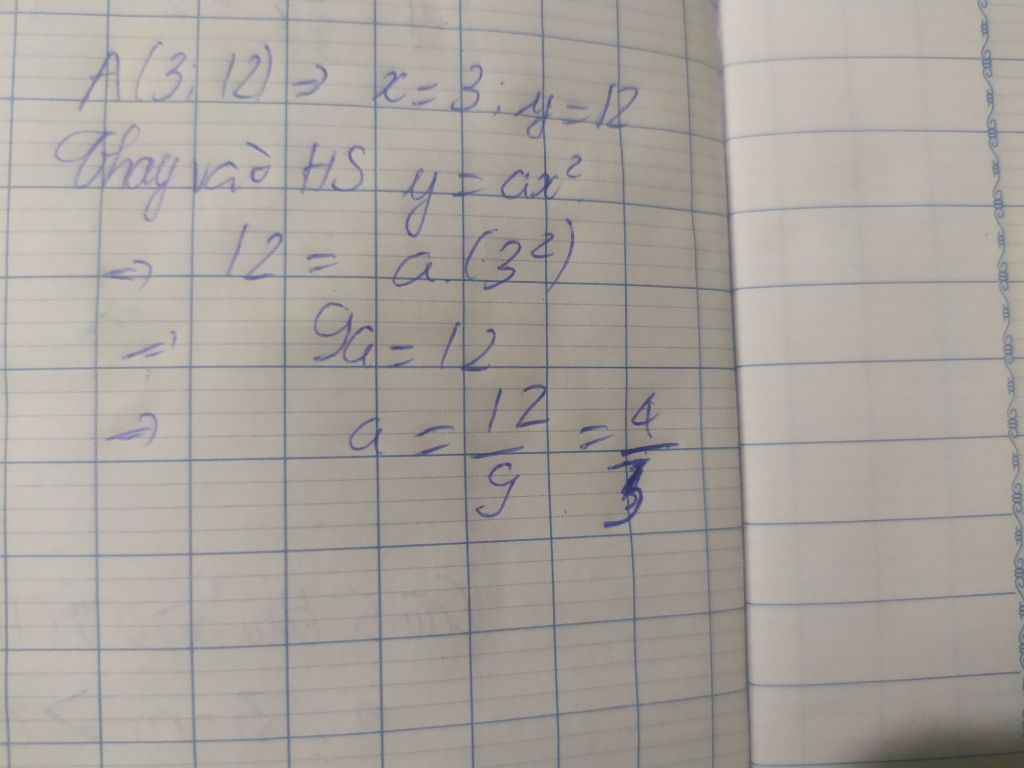 A(3; 12) ⇒ x = 3; y = 12
Thay vào HS y = ax²
⇒ 12 = a.(3²)
⇒ 9a = 12
⇒ a = 12/9 = 4/3